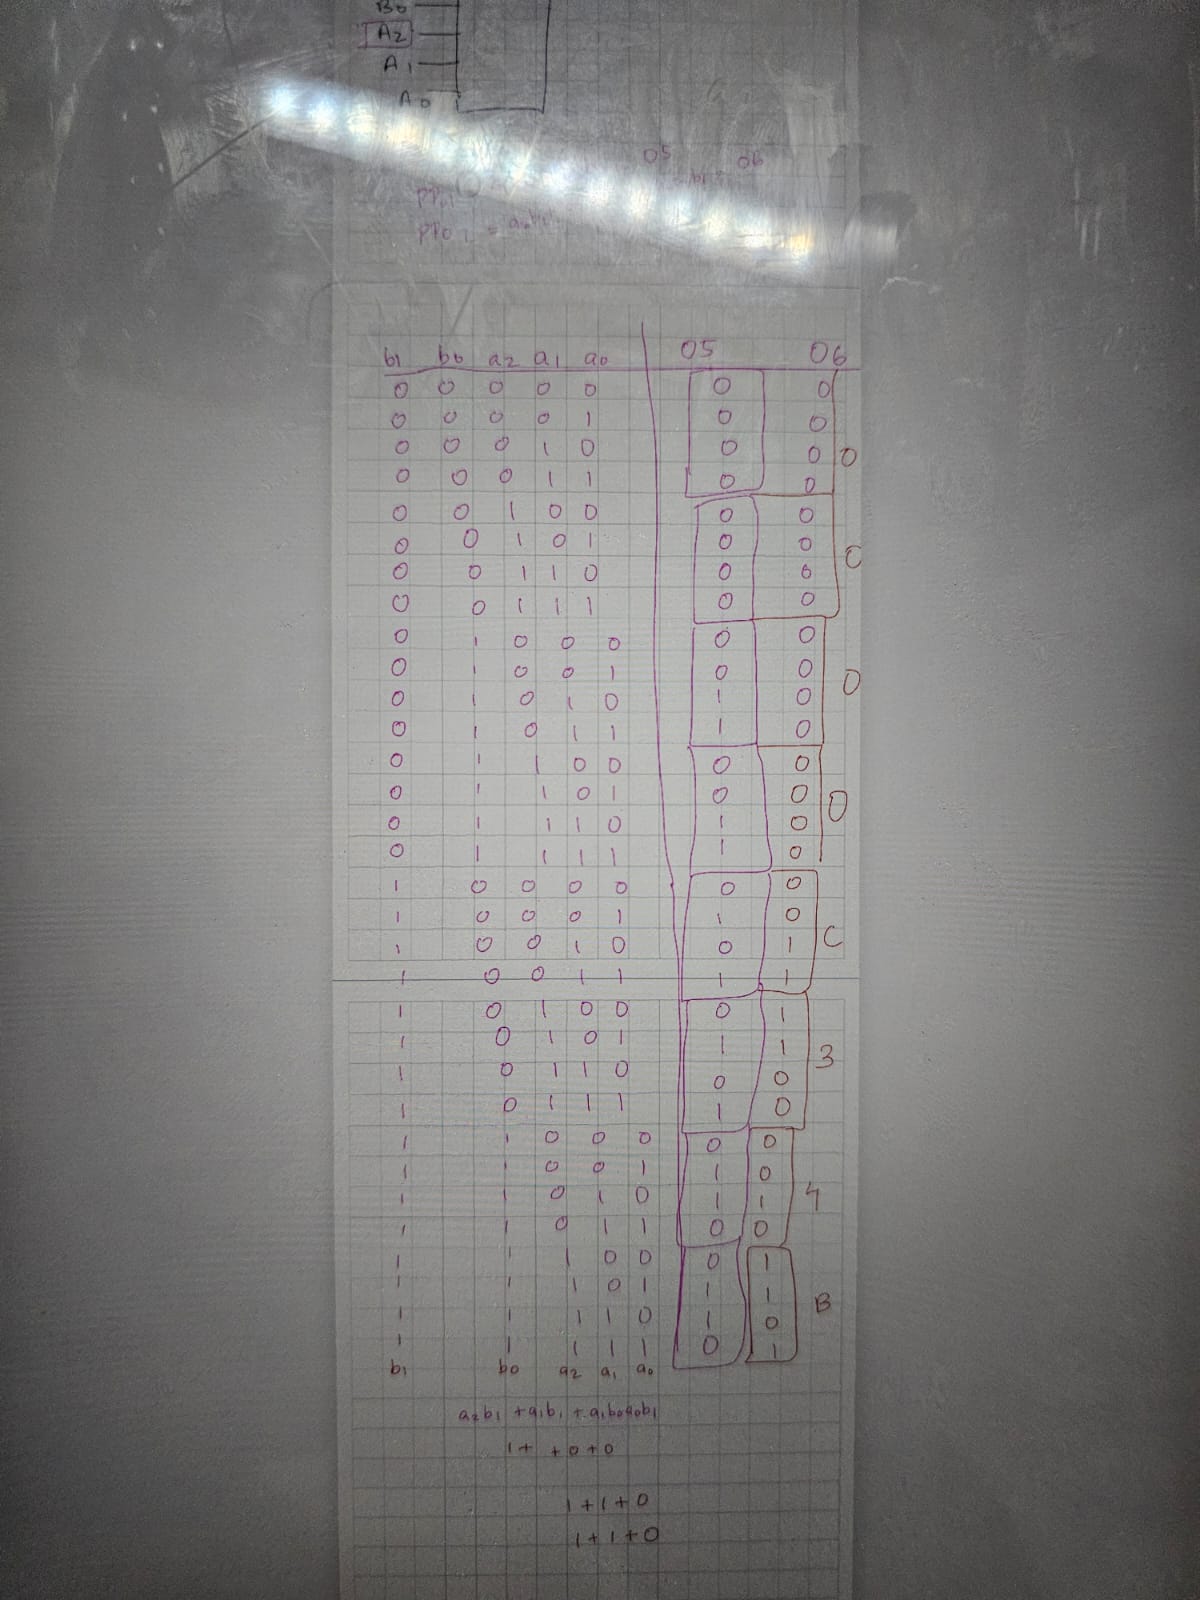 B0
A2
A1
A0
05 06
PP01
PP02 = a0b1
b1 b0 a2 a1 a0 05 06
0 0 0 0 0 0 0
0 0 0 0 1 0 0
0 0 0 1 0 0 0 0
0 0 0 1 1 0 0
0 0 1 0 0 0 0
0 0 1 0 1 0 0 0
0 0 1 1 0 0 0
0 0 1 1 1 0 0
0 1 0 0 0 0 0
0 1 0 0 1 0 0 0
0 1 0 1 0 1 0
0 1 0 1 1 1 0
0 1 1 0 0 0 0
0 1 1 0 1 0 0 0
0 1 1 1 0 1 0
0 1 1 1 1 1 0
1 0 0 0 0 0 0
1 0 0 0 1 1 0 C
1 0 0 1 0 0 1
1 0 0 1 1 1 1
1 0 1 0 0 0 1
1 0 1 0 1 1 1 3
1 0 1 1 0 0 0
1 0 1 1 1 1 0
1 1 0 0 0 0 0
1 1 0 0 1 1 0 4
1 1 0 1 0 1 1
1 1 0 1 1 0 0
1 1 1 0 0 0 1
1 1 1 0 1 1 1 B
1 1 1 1 0 1 0
1 1 1 1 1 0 1
b1 b0 a2 a1 a0
a2b1 + a1b1 + a1b0a0b1
1 + + 0 + 0
1 + 1 + 0
1 + 1 + 0